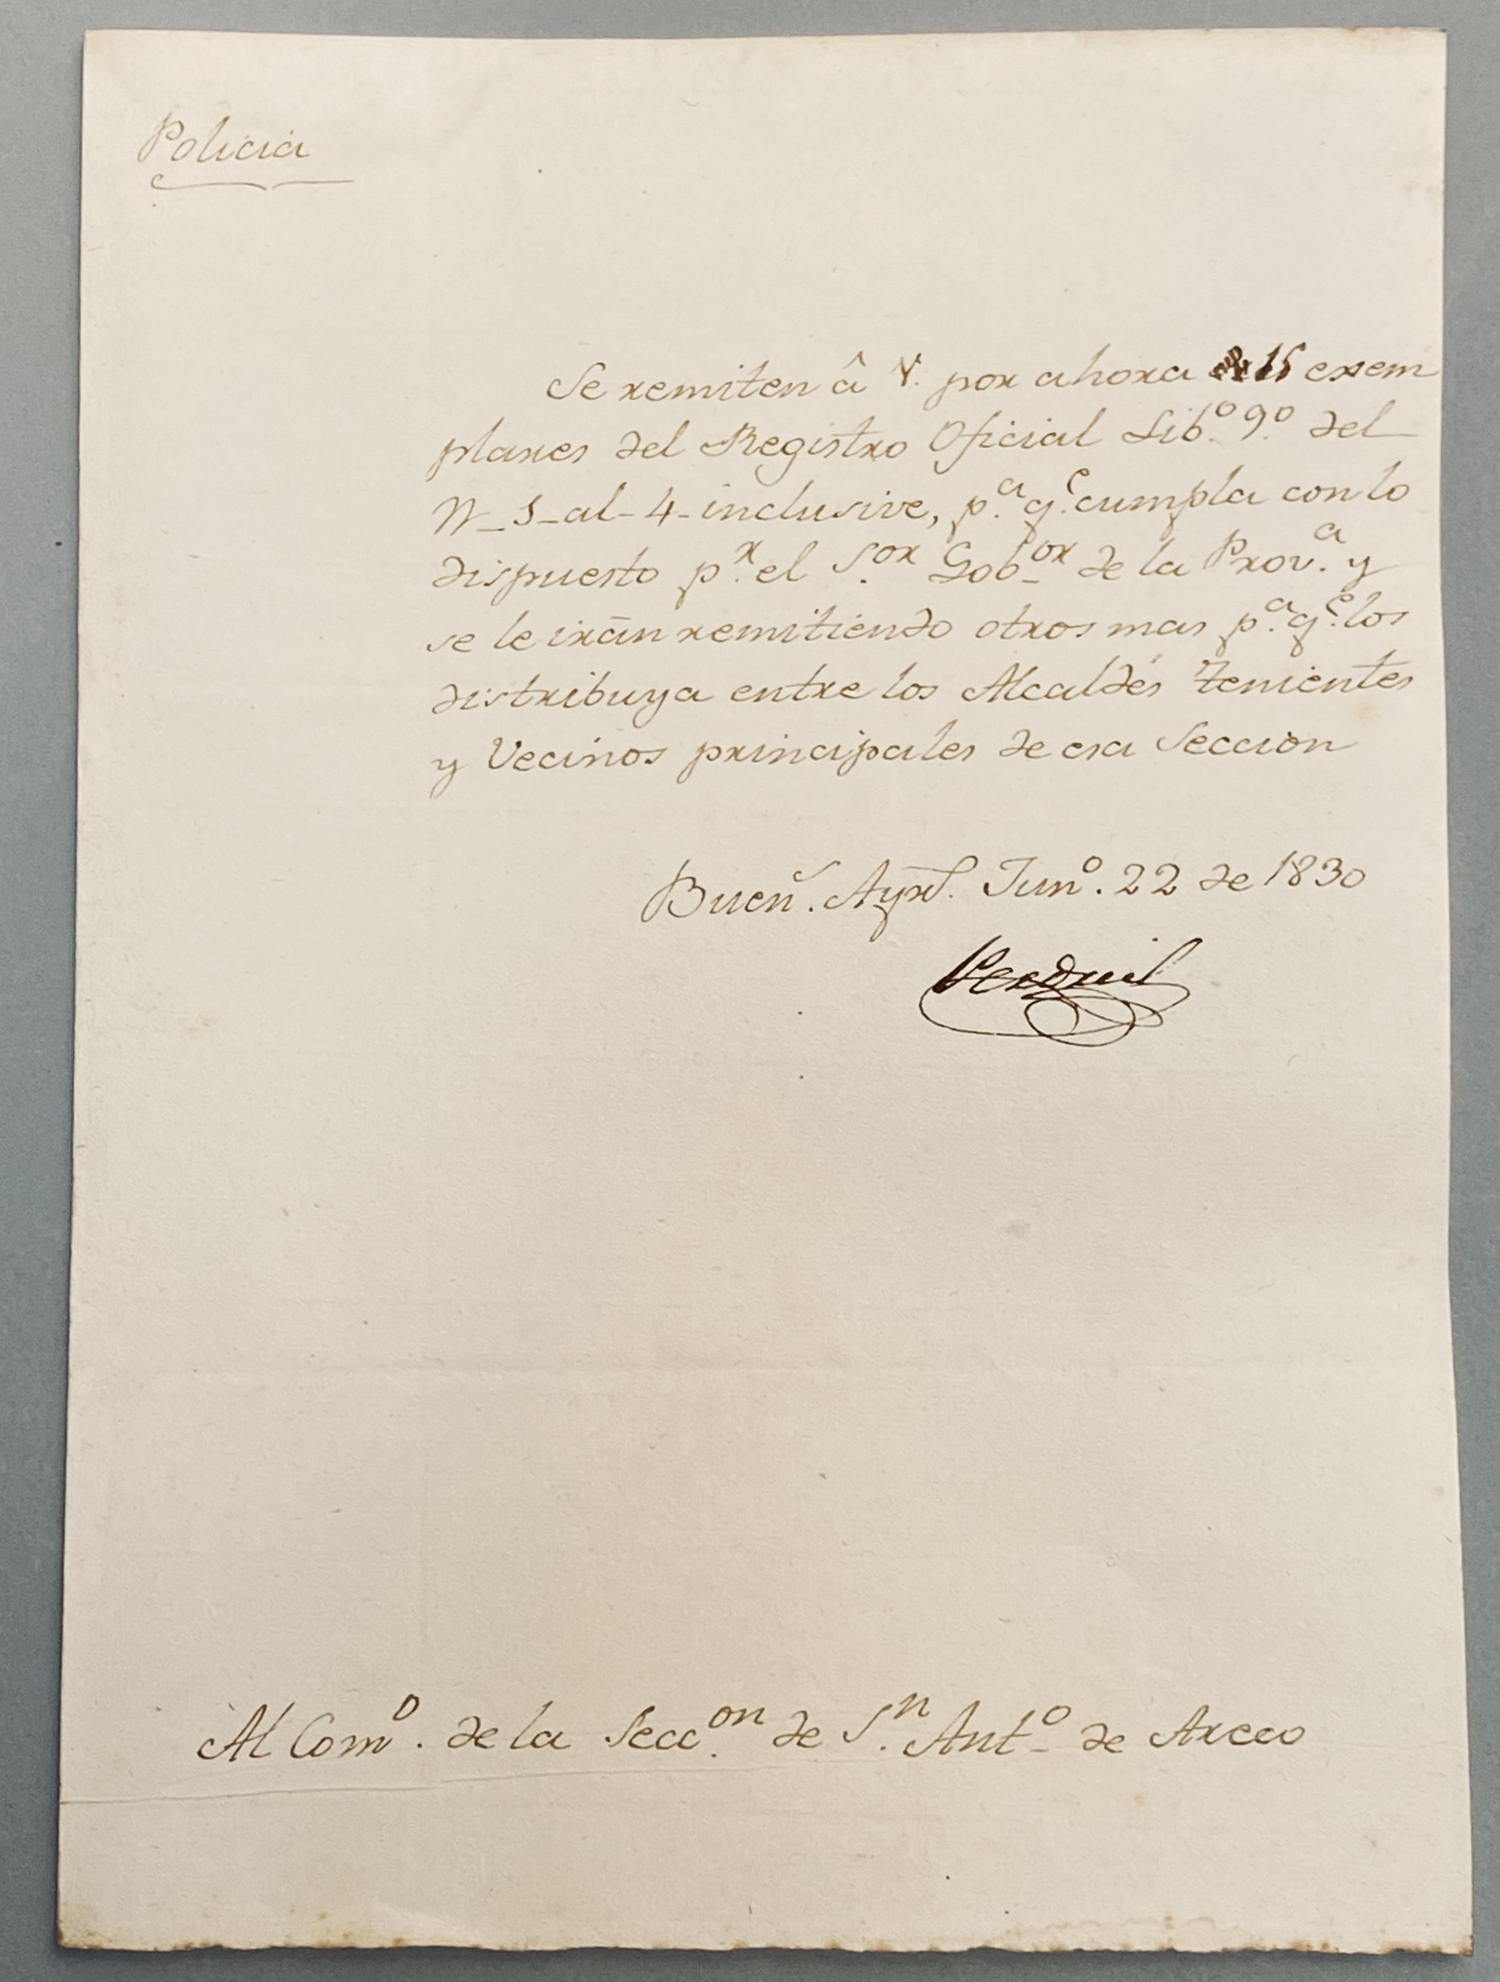 Policia
Se remiten â V. por ahora 15 exem
plares del Registro Oficial Lib.º 9.º del
N_1_al_4_inclusive, p.ª q.e cumpla con lo
dispuesto p.r el S.or Gob.or de la Prov.ª y
se le irān remitiendo otros mas p.ª q.e los
distribuya entre los Alcaldes Tenientes
y Vecinos principales de esa Seccion
Buen.s Ayr.s Jun.º 22 de 1830
Al Com.º de la Secc.on de S.n Ant.º de Areco